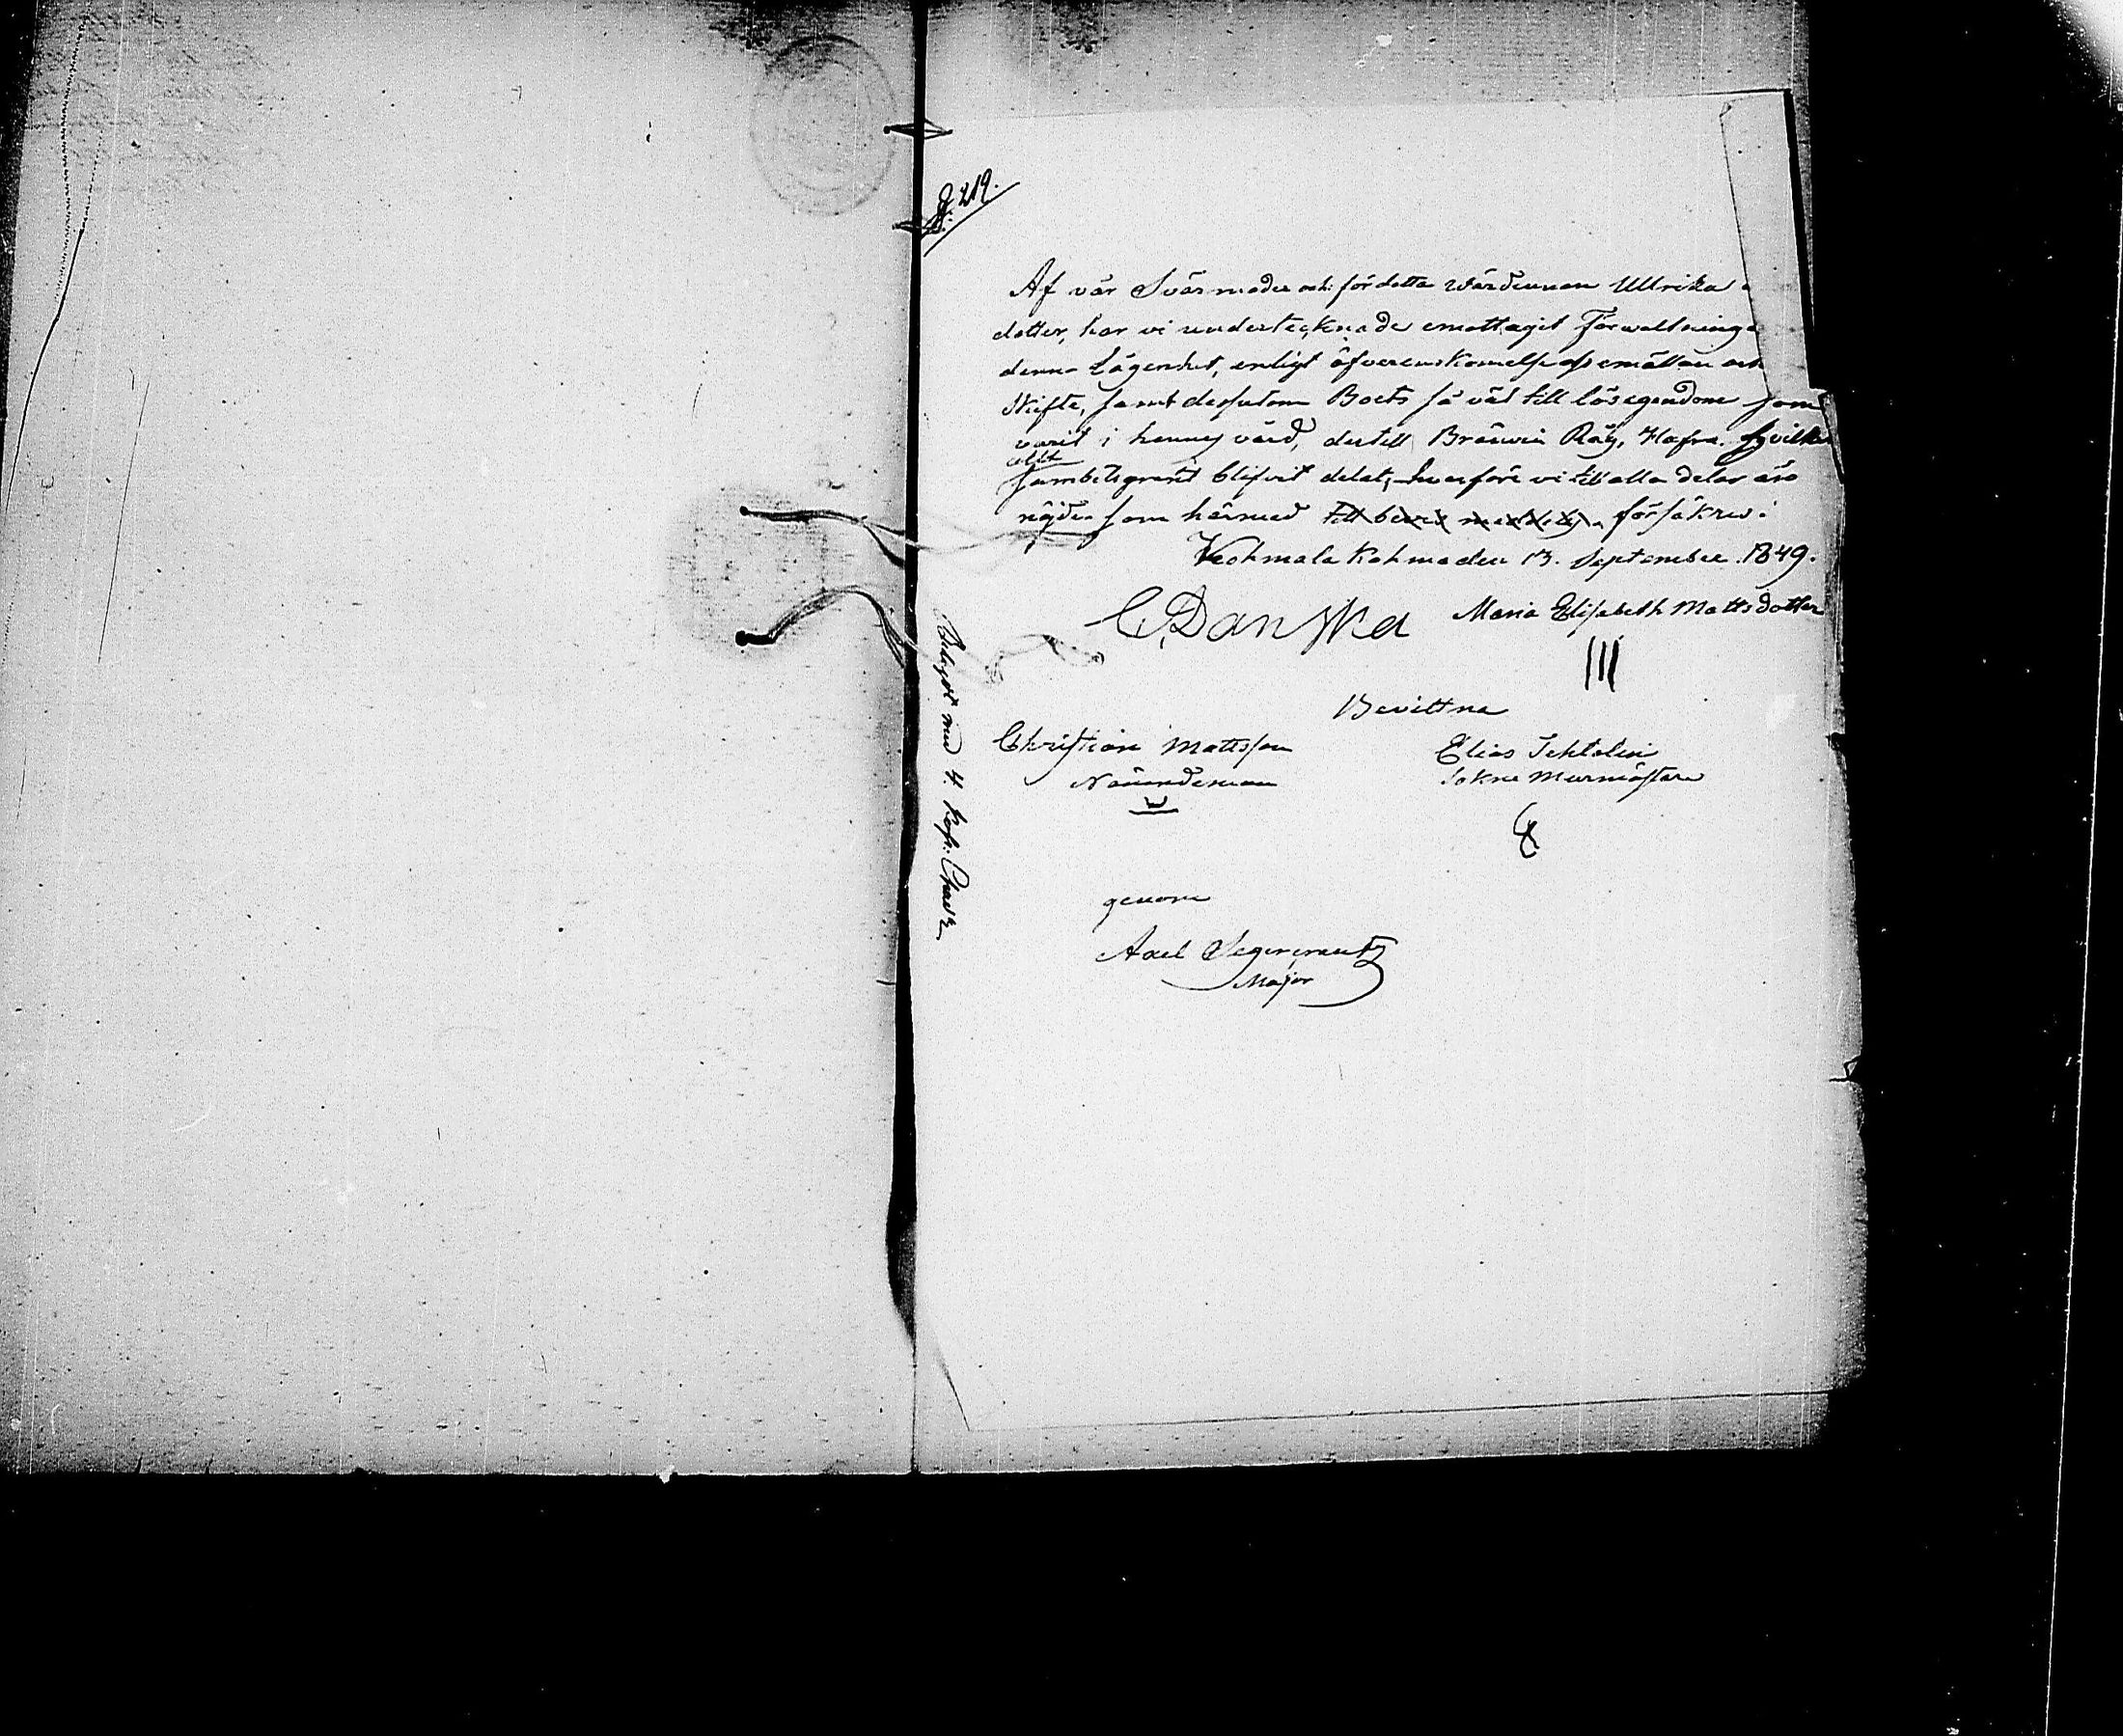 §. 219.
Af vår Svärmoder och för detta värdinnan Ullrika
dotter, har vi undertecknade emottagit Förvaltninge
denna Lägenhet, enligt öfverenskommelse oss emällan och
Skifte, samt dessutom Boets så väl till lösegendom som
varit i hennes vård, dertill Bränvin Råg, Hafra. hvilka
allt
samteligenst blifvit delat, hvarföre vi till alla delar äro
nöjda som härmed till bevis meddelas försäkras.
Kohmala Kohmaden 13. September. 1849.
C, Danska Maria Elisabeth Mattsdotter
III
Bevittna
Christian Mattsson Elias Tehtolin
Nämndeman Sokne Murmästare
genom
Axel Segercrantz
Major
Belagdt med 4. Kop: Charta